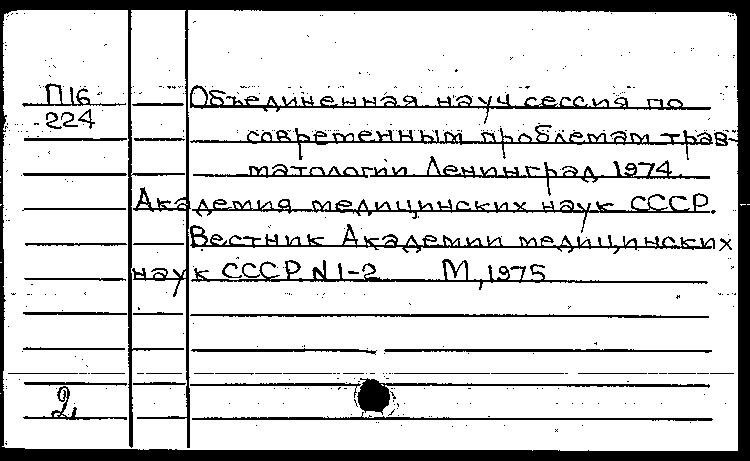 П16
224
Объединенная науч сессия по
современным проблемам трав-
матологии Ленинград 1974.
Академия медицинских наук СССР.
Вестник Академии медицинских
наук СССР. N 1-2 М, 1975
2